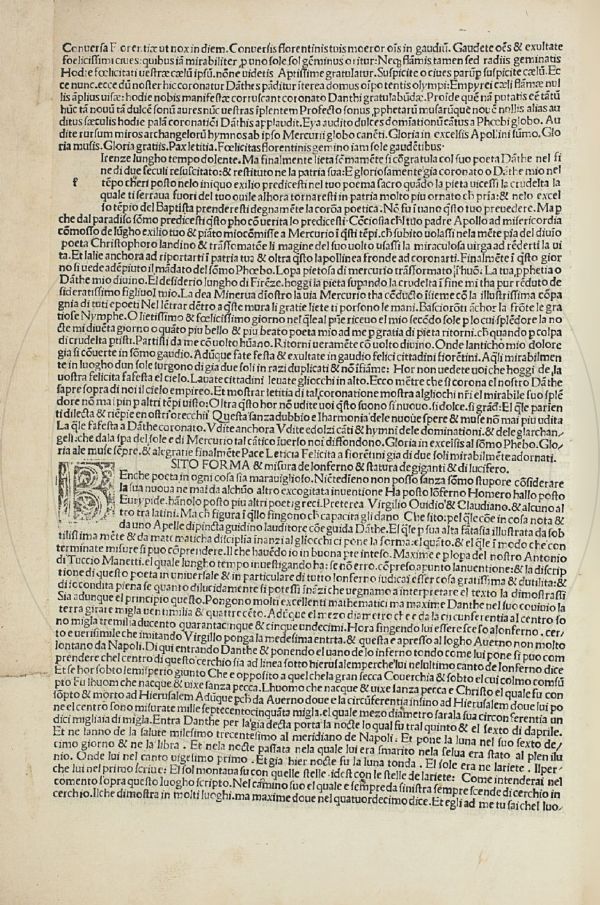 Conversa Florentiæ ut nox in diem. Conversis florentinis tuis moeror oīs in gaudiū. Gaudete oēs & exultate
foelicissimi ciues: quibus tā mirabiliter, p uno sole sol geminus oritur: Neq; flāmis tamen sed radiis geminatis
Hodie foelicitati uestræ cælū ipsū. nōne uidetis Aptissime gratulatur. Suspicite o ciues parūp suspicite cælū. Ec
ce nunc. ecce dū noster hic coronatur Dāthes pāditur iterea domus oīpotentis olympi: Empyrei cæli flāmæ nul
lis āplius uisæ: hodie nobis manifestæ corruscant coronato Danthi gratulabūdæ. Proide quē nā putatis eē tātū
hūc tā nouū tā dulcē sonū aures nūc uestras īplentem Profecto sonus, pphetarū musarūque nouē nollis alias au
ditus sæculis hodie palā coronatiōi Dāthis applaudit. Eya audito dulces domiationū cātus a Phoebi globo. Au
dite rursum miros archangelorū hymnos ab ipso Mercurii globo canēti. Gloria in excelsis Apollini sūmo. Glo
ria musis. Gloria gratiis. Pax letitia. Foelicitas florentinis gemino iam sole gaudētibus.
f irenze lungho tempo dolente. Ma finalmente lieta sēmamēte si cōgratula col suo poeta Dāthe nel fi
ne di due seculi resuscitato: & restituto ne la patria sua: Et gloriosamente gia coronato o Dāthe mio nel
tēpo che ri posto nelo iniquo exilio predicesti nel tuo poema sacro quādo la pieta uicessi la crudelta la
quale ti serraua fuori del tuo ouile alhora tornaresti in patria molto piu ornato ch pria: & nelo excel
so tēpio del Baptista prenderesti degnamēte la corōa poetica. Nē fu i uano q̄sto tuo preuedere. Ma p
che dal paradiso sōmo predicesti q̄sto pho cō uerita lo predicesti: Cōciosia ch'l tuo padre Apollo ad misericordia
cōmosso de lūgho exilio tuo & piāto mio cōmisse a Mercurio i q̄sti tēpi. ch subito uolassi ne la mēte pia del diuio
poeta Christophoro landino & trāsformatose li magine del suo uolto usassi la miraculosa uirga ad rēderti la ui
ta. Et lalie anchora ad riportarti ī patria tua & oltra q̄sto la pollinea fronde ad coronarti. Finalmēte i q̄sto gior
no si uede adēpiuto il mādato del sōmo Phoebo. Lopa pietosa di mercurio trāsformato ī huōi. La tua, pphetia o
Dāthe mio diuino. El desiderio lungho di Firēze. hoggi la pieta supando la crudelta ī fine mi tha pur rēduto de
sideratissimo figliuol mio. La dea Minerua dīostro la uia Mercurio tha cōducto īsieme cō la illustrissima cōpa
gnia di tuti e poeti Nel lētrar dētro a q̄ste mura li gratie liete ti porsono le mani. Basciorōti āchor la frōte le gra
tiose Nymphe. O lietissimo & foelicissimo giorno nel q̄le al piē riceuo el mio secōdo sole p lo cui splēdore la no
cte mi diueta giorno o quāto piu bello & piu beato poeta mio ad me p gratia di pieta ritorni. ch quando p colpa
di crudelta pristi. Partisti da me cō uolto hūano. Ritorni uera mēte cō uolto diuino. Onde lanticho mio dolore
gia si cōuerte in sōmo gaudio. Adūque fate festa & exultate in gaudio felici cittadini fiorētini. Aq̄li mirabilmen
te in luogho dun sole surgono di gia due soli in razi duplicati & nō ifiāme: Hor non uedete uoi che hoggi de. la
uostra felicita fa festa el cielo. Lauate cittadini leuate gliocchi in alto. Ecco mētre che si corona el nostro Dāthe
sapre sopra di noi il cielo empireo. Et mostrar letitia di tal coronatione mostra al gliochi nr̄i el mirabile suo splē
dore nō mai pin p altri tēpi uisto: Oltra q̄sto hor nō udite uoi q̄sto suono si nuouo. si dolce. si grād: El q̄le parien
ti dilecta & riēpie en ostri orecchii Questa sanza dubbio e lharmonia dele nuoue spere & muse nō mai piu udita
La q̄le fa festa a Dāthe coronato. Vdite anchora Vdite edolzi cāti & hymni dele dominationi. & dele glarchan
geli. che dala spa del sole e di Mercurio tal cātico suerso noi diffondono. Gloria in excelsis al sōmo Phebo. Glo
ria ale muse sēpre. & ale gratie finalmēte Pace Leticia Felicita a fiorētini gia di due soli mirabilmēte adornati.
SITO FORMA & misura de lonferno & statura de giganti & di lucifero.
BEnche poeta in ogni cosa sia marauiglioso. Nietedieno non posso sanza sōmo stupore cōsiderare
la sua nuoua ne mai da alchūo altro excogitata inuentione Ha posto lōferno Homero hallo posto
Eurypide. hānolo posto piu altri poeti greci. Preterea Virgilio Ouidio & Claudiano. & alcuno al
tro tra latini. Mach figura i q̄llo fingono ch capacita gli dano. Che sito: pel q̄le cōe in cosa nota &
da uno Apelle dipincta guidino lauditore cōe guida Dāthe. El q̄le p sua alta fātasia illustrata da sob
tilissima mēte & da matematicha disciplīa īnanzi al gliocchi ci pone la forma: el quāto. & el q̄le i modo che con
terminate misure si puo cōprendere. Il che hauēdo io in buona pte inteso. Maxime e plopa del nostro Antonio
di Tuccio Manetti. el quale lungho tempo inuestigando ha: se nō erro. cō presto a punto lanuentione: & la discrip
tione di questo poeta in uniuersale & in particulare di tutto lonferno iudicai esser cosa gratissima & dutilita: &
di iocondita piena se quanto dilucidamente si potessi īnāzi che uegnamo a interpretare el texto la dimostrassi
Sia adunque el principio questo. Pongono molti excellenti mathematici ma maxime Danthe nel suo conuiuio la
terra girare migla uentimilia & quattrocēto. Adūque el mezo diametro che e da la circunferentia al centro so
no migla tremilia ducento quaranta cinque & cinque undecimi. Hora fingendo lui essere scesso a lonferno. cer
to e uerisimile che imitando Virgilio ponga la medesima entrata. & questa e apresso al logho Auerno non molto
lontano da Napoli. Di qui entrando Danthe & ponendo el uano de lo inferno tondo come lui pone si puo com
prendere chel centro di questo cerchio sia ad linea sotto hierusalem perche lui nelultimo canto de lonferno dice
Et se hor sobto lemisperio giunto Che e opposito a quel che la gran secca Couerchia & sobto el cui colmo comsū
pto Fu lhuom che nacque & uixe sanza pecca. Lhuomo che nacque & uixe sanza pecca e Christo el quale fu con
sōpto & morto ad Hierusalem Adūque pch da Auerno doue e la circūferentia insino ad Hierusalem doue lui po
ne el centro sono misurate mille septecentocinquāta migla. el quale mezo diametro sara la sua circonferentia un
dici migliaia di migla. Entra Danthe per la gia decta porta la nocte lo qual fu tral quinto & el sexto di daprile.
Et ne lanno de la salute milesimo trecentesimo al meridiano di Napoli. Et pone la luna nel suo sexto de
cimo giorno & ne la libra. Et nela nocte passata nela quale lui era smarito nela selua era stato al plen ilu
nio. Onde lui nel canto uigesimo primo. Et gia hier nocte fu la luna tonda. El sole era ne lariete. Ilper
che lui nel primo scriue: El sol montaua su con quelle stelle. idest con le stelle de lariete: Come intenderai nel
comento sopra questo luogho scripto. Nel camino suo el quale e sempre da sinistra sempre scende di cerchio in
cerchio. Ilche dimostra in molti luoghi. ma maxime doue nel quatuordecimo dice. Et egli ad me tu sai chel luo